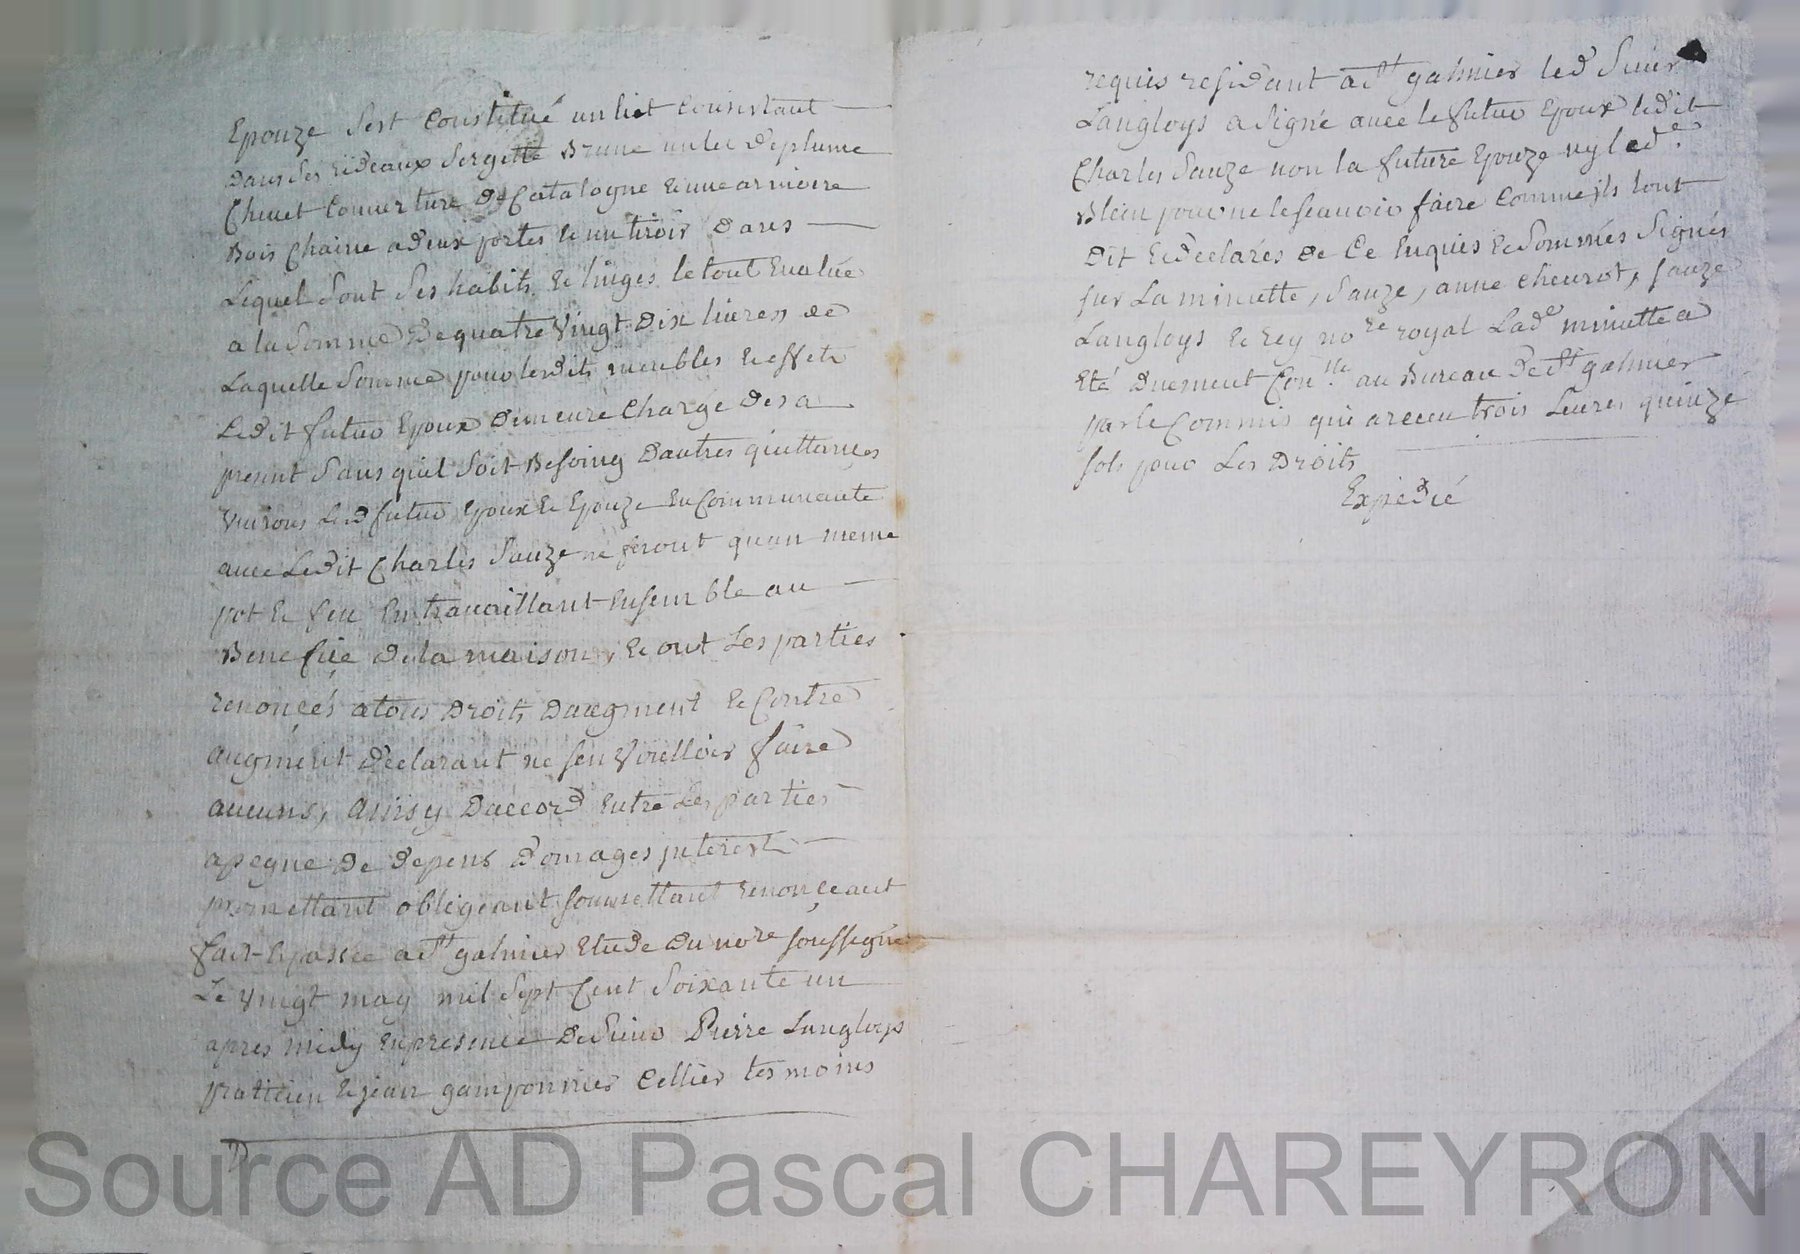 Epouze sest Constitué un liet Consistant
dans ses rideaux sergette Brune un lit deplume
Chevet Couverture de Catalogne & une armoire
Bois Chaine adeux portes & un tiroir dans
Lequel sont ses habits & linges le tout Evalué
a la somme De quatre vingt dix livres de
Laquelle somme pour lesdits meubles & effets
Ledit futur Epoux demeure Charge des a
present sans quil soit Besoing dautres quittances
vivrons Lesd futur Epoux & Epouze En Communauté
avec Ledit Charles Sauze ne feront quun meme
pot & feu En travaillant Ensemble au
Benefice de la maison, & ont Les parties
renoncés atous droits daugment & Contre
augment declarant ne sen vouelloir faire
aucuns, ainsy Daccord Entre Les parties
apegne de depens domages jnterest
promettant obligeant soumettant renonçeant
fait & passée a St galmier Etude du nore soussigné
Le vingt may mil sept Cent soixante un
apres midy En presence De sieur Pierre Langloys
pratticien & jean gamponnier Cellier tesmoins
requis residant a St galmier led sieur
Langloys a signé avec le futur Epoux ledit
Charles Sauze non la future Epouze ny lad.e
Blein pour ne le scavoir faire Comme ils lont
dit & declarés de Ce Enquis & sommés signés
sur La minutte, Sauze, anne cheurot, Sauze
Langloys & rey nore royal Lade minutte a
Eté duement Conlle au Bureau de St galmier
par le Commis qui a receu trois Livres quinze
sols pour Les droits
Expedié
Source AD Pascal CHAREYRON